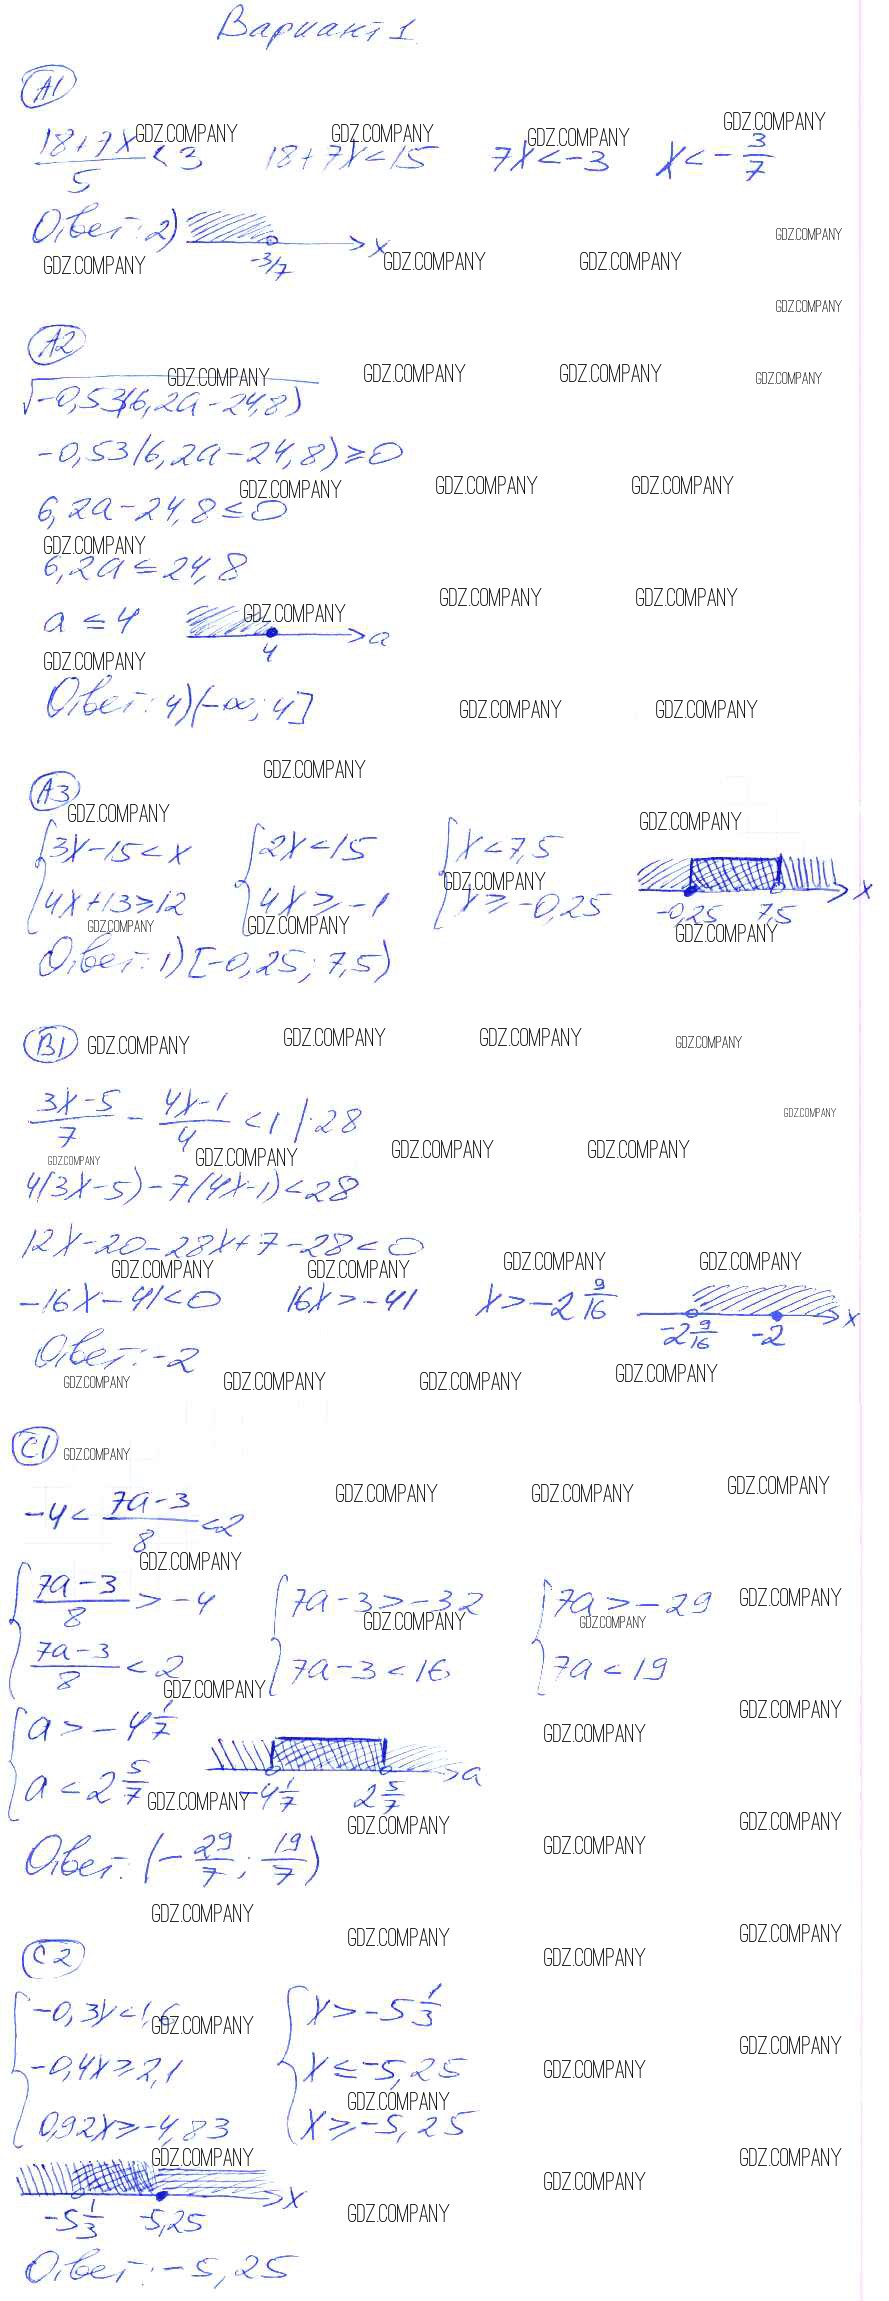 Вариант 1
А1
(18+7x)/5 < 3   18+7x<15   7x<-3   x<-3/7
Ответ: 2) -3/7 x
А2
√(-0,53(6,2a-24,8))
-0,53(6,2a-24,8)≥0
6,2a-24,8≤0
6,2a≤24,8
a≤4   4 a
Ответ: 4)(-∞; 4]
А3
{3x-15<x   {2x<15   {x<7,5
4x+13≥12   4x≥-1   x≥-0,25   -0,25 7,5 x
Ответ: 1) [-0,25; 7,5)
В1
(3x-5)/7 - (4x-1)/4 < 1 |·28
4(3x-5)-7(4x-1)<28
12x-20-28x+7-28<0
-16x-41<0   16x>-41   x>-2 9/16   -2 9/16 -2 x
Ответ: -2
С1
-4 < (7a-3)/8 < 2
{(7a-3)/8 > -4   {7a-3>-32   {7a>-29
(7a-3)/8 < 2   7a-3<16   7a<19
{a>-4 1/7
a<2 5/7   -4 1/7 2 5/7 a
Ответ: (-29/7; 19/7)
С2
{-0,3x<1,6   {x>-5 1/3
-0,4x≥2,1   x≤-5,25
0,92x≥-4,83   x≥-5,25
-5 1/3 -5,25 x
Ответ: -5,25
GDZ.COMPANY